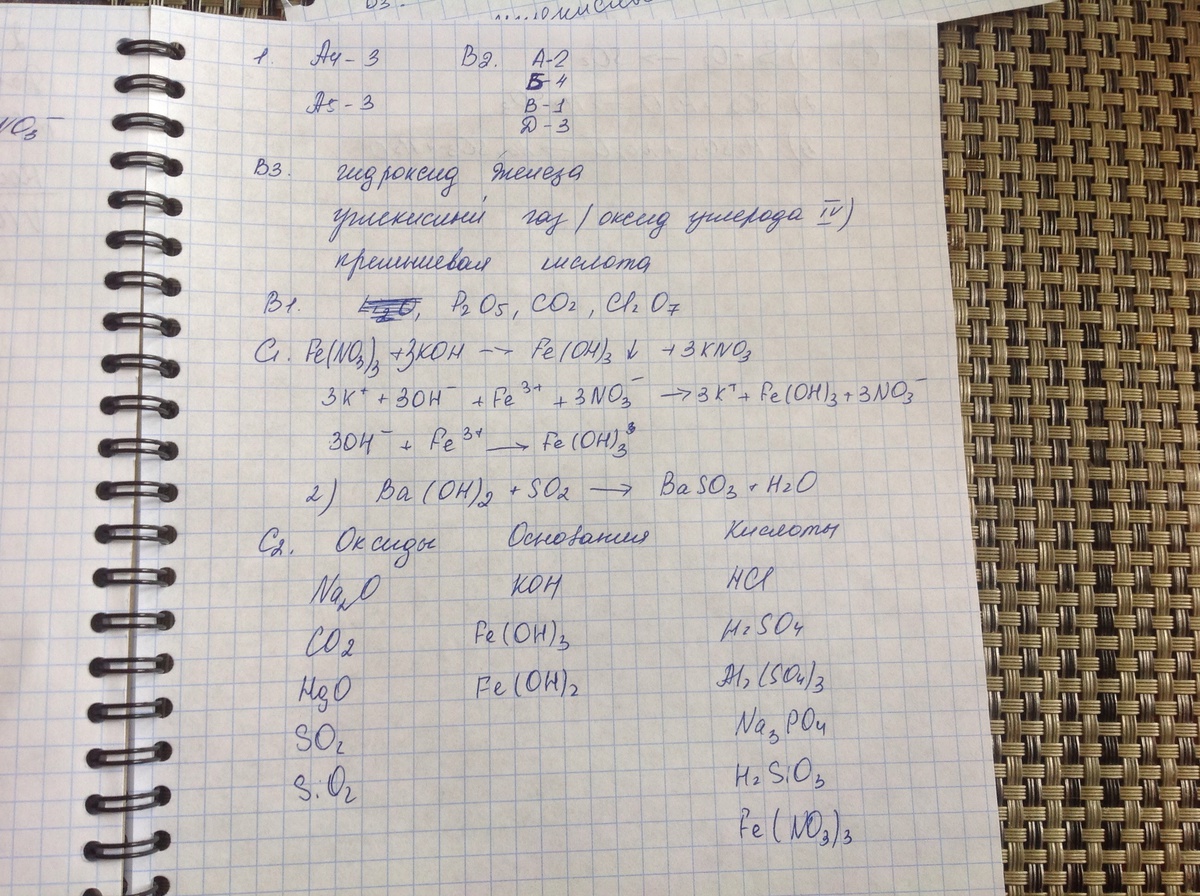 1. А4 - 3 В2. А-2
Б-4
А5 - 3 В-1
Д-3
В3. гидроксид железа
углекислый газ (оксид углерода IV)
кремниевая кислота
В1. P₂O₅, CO₂, Cl₂O₇
C1. Fe(NO₃)₃ + 3KOH → Fe(OH)₃↓ + 3KNO₃
3K⁺ + 3OH⁻ + Fe³⁺ + 3NO₃⁻ → 3K⁺ + Fe(OH)₃ + 3NO₃⁻
3OH⁻ + Fe³⁺ → Fe(OH)₃
2) Ba(OH)₂ + SO₂ → BaSO₃ + H₂O
C2. Оксиды Основания Кислоты
Na₂O KOH HCl
CO₂ Fe(OH)₃ H₂SO₄
HgO Fe(OH)₂ Al₂(SO₄)₃
SO₂ Na₃PO₄
SiO₂ H₂SiO₃
Fe(NO₃)₃